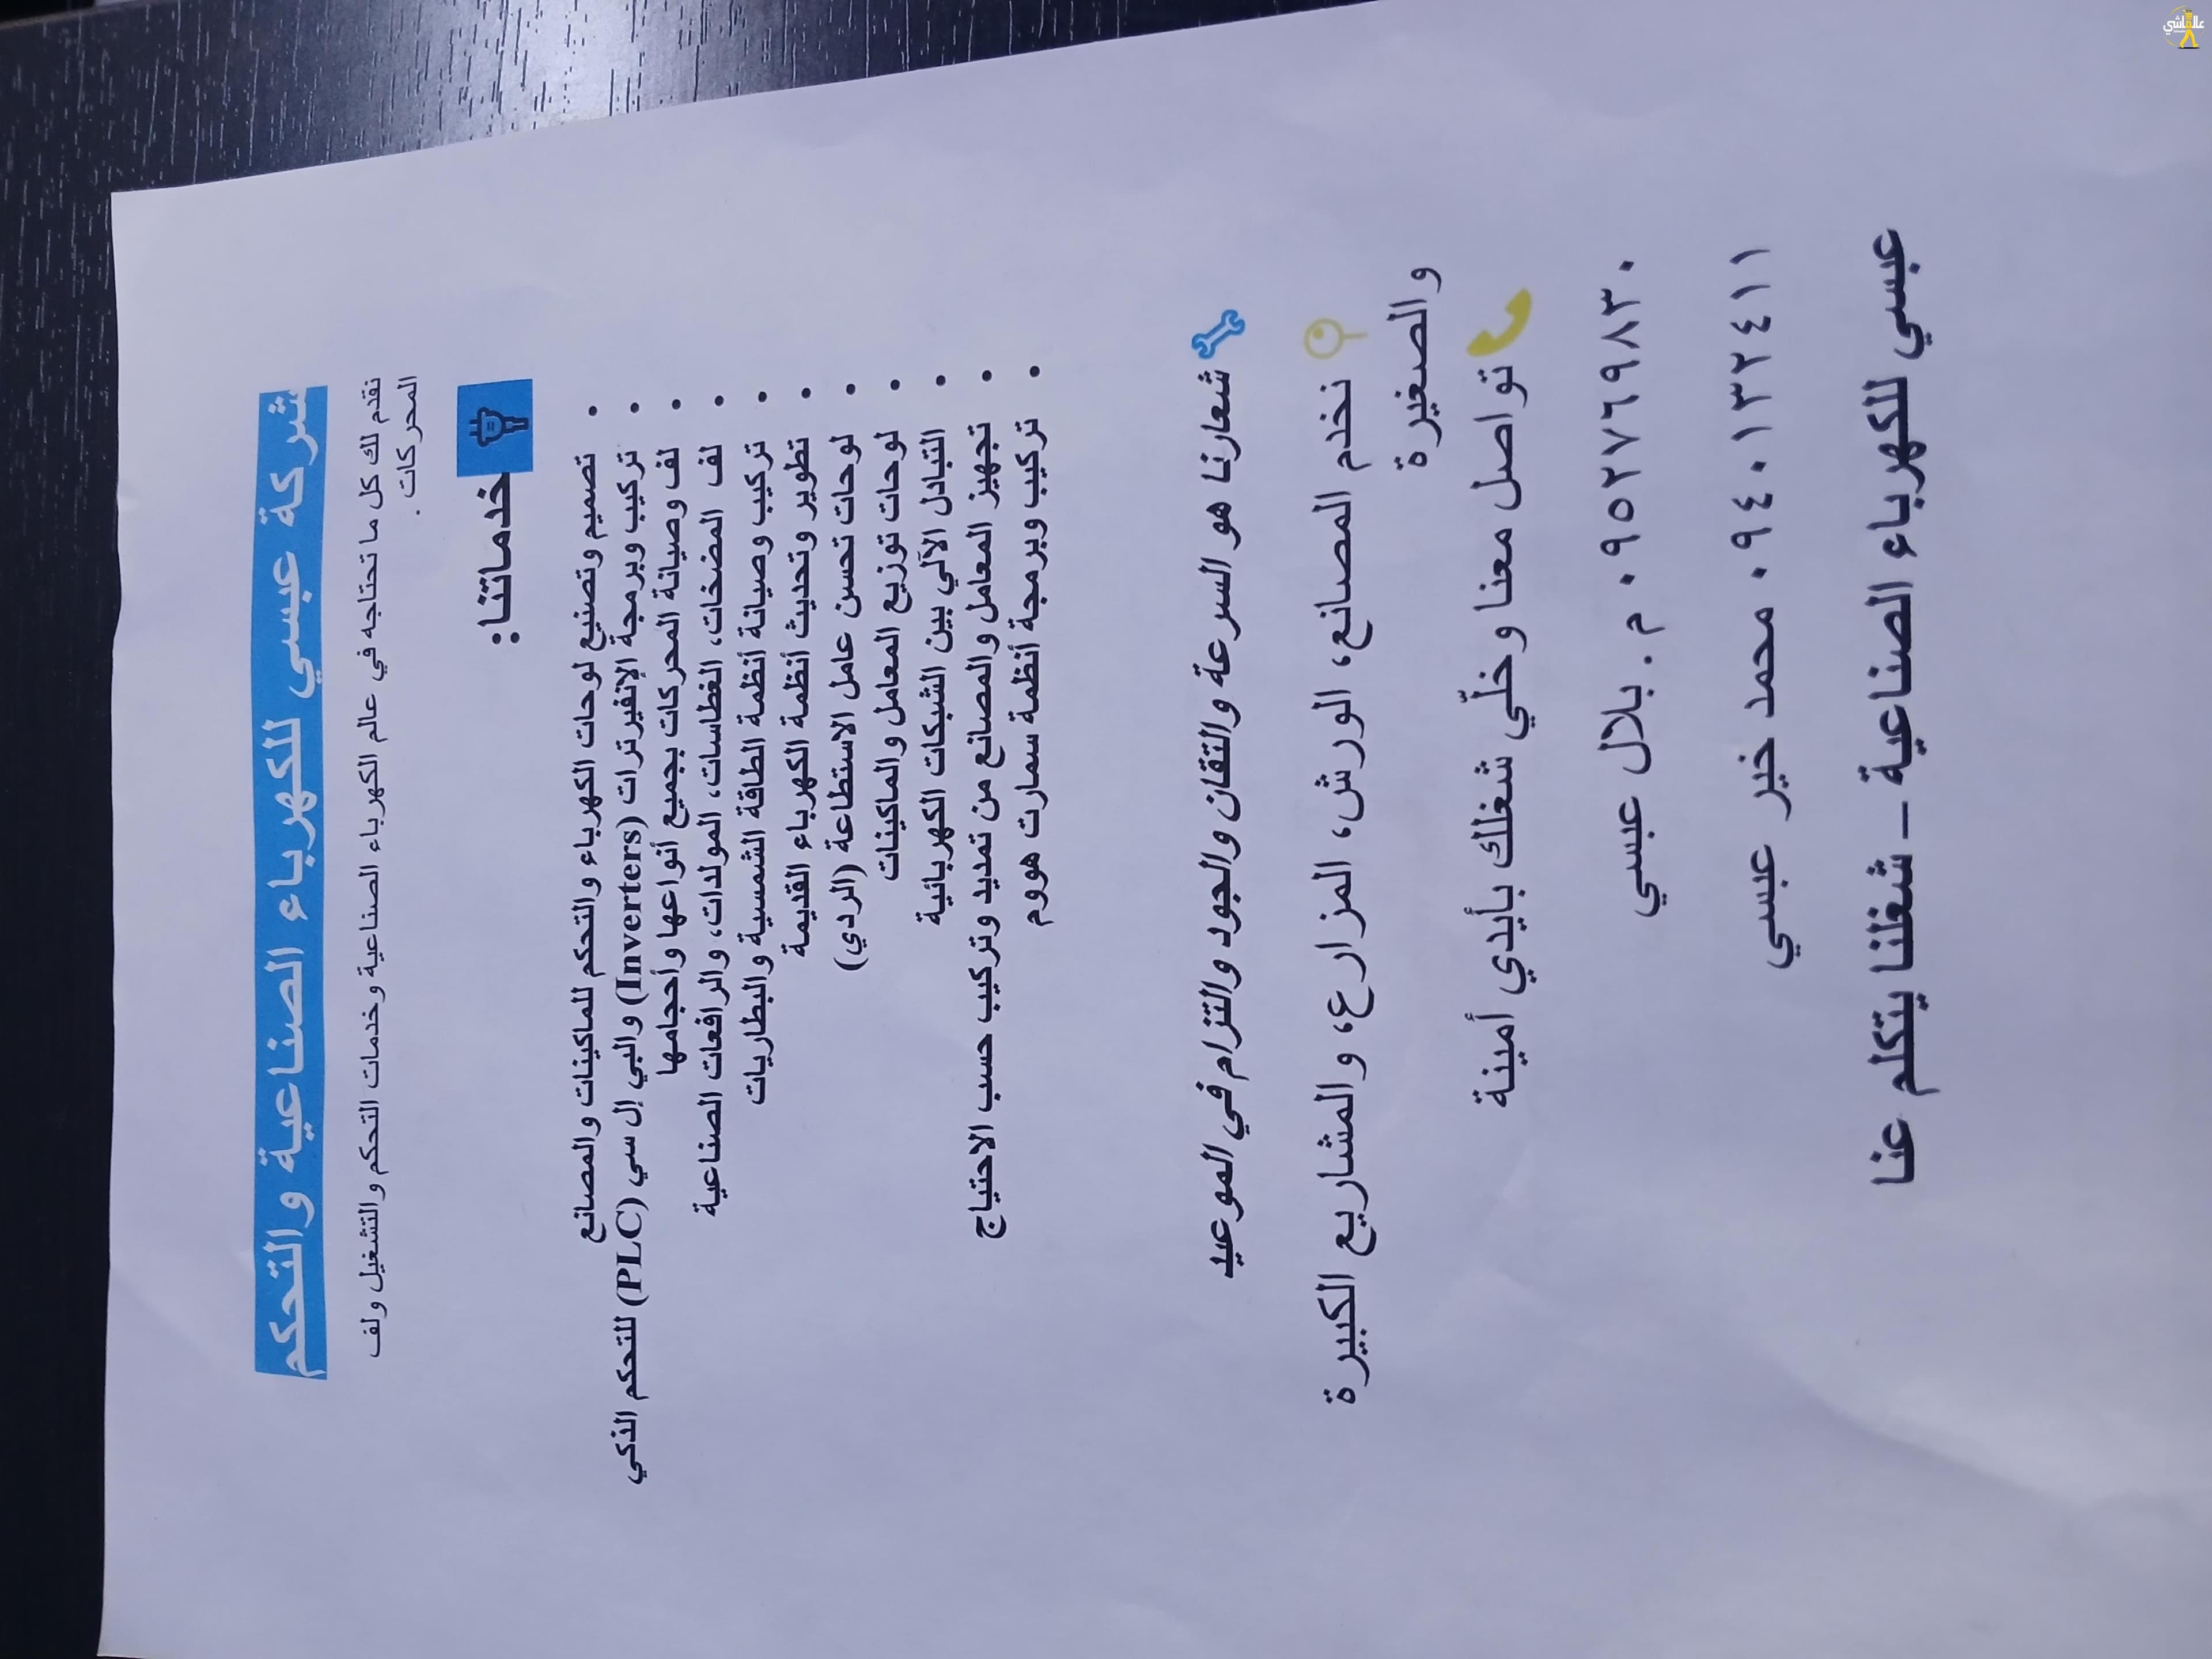 شركة عبسي للكهرباء الصناعية والتحكم
نقدم لك كل ما تحتاجه في عالم الكهرباء الصناعية وخدمات التحكم والتشغيل ولف
المحركات .
خدماتنا:
• تصميم وتصنيع لوحات الكهرباء والتحكم للماكينات والمصانع
• تركيب وبرمجة الإنفيرترات (Inverters) والبي إل سي (PLC) للتحكم الذكي
• لف وصيانة المحركات بجميع أنواعها وأحجامها
• لف المضخات، الغطاسات، المولدات، والرافعات الصناعية
• تركيب وصيانة أنظمة الطاقة الشمسية والبطاريات
• تطوير وتحديث أنظمة الكهرباء القديمة
• لوحات تحسن عامل الاستطاعة (الردي)
• لوحات توزيع المعامل والماكينات
• التبادل الآلي بين الشبكات الكهربائية
• تجهيز المعامل والمصانع من تمديد وتركيب حسب الاحتياج
• تركيب وبرمجة أنظمة سمارت هووم
شعارنا هو السرعة والتقان والجود والتزام في الموعيد
نخدم المصانع، الورش، المزارع، والمشاريع الكبيرة
والصغيرة
تواصل معنا وخلّي شغلك بأيدي أمينة
٠٩٥٢٧٦٩٨٣٠ م. بلال عبسي
٠٩٤٠١٣٢٤١١ محمد خير عبسي
عبسي للكهرباء الصناعية – شغلنا يتكلم عنا
عالماشي